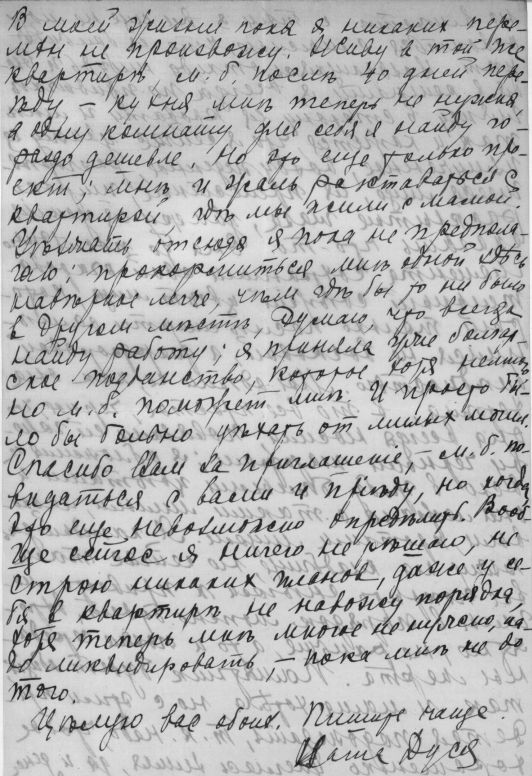 В моей жизни пока я никаких пере-
мѣн не произвожу. Живу в той же
квартирѣ, м. б. послѣ 40 дней пере-
ѣду – кухня мнѣ теперь не нужна,
а одну комнату для себя я найду го-
раздо дешевле. Но это еще только про-
ект; мнѣ и жаль разставаться с
квартирой, гдѣ мы жили с мамой.
Уѣзжать отсюда я пока не предпола-
гаю, прокормиться мнѣ одной здѣсь
навѣрное легче, чѣм гдѣ бы то ни было
в другом мѣстѣ, думаю, что всегда
найду работу; я приняла уже болгар-
ское подданство, которое хотя
но м. б. поможет мнѣ. И просто бы-
ло бы больно уѣхать от милых могил.
Спасибо Вам за приглашеніе, – м. б. по-
видаться с вами и пріѣду, но когда
это еще невозможно опредѣлить. Вооб-
ще сейчас я ничего не рѣшаю, не
строю никаких планов, даже у се-
бя в квартирѣ не навожу порядка,
хотя теперь мнѣ многое не нужно, на-
до ликвидировать, – пока мнѣ не до
того.
Цѣлую вас обоих. Пишите чаще.
Ваша Дуся